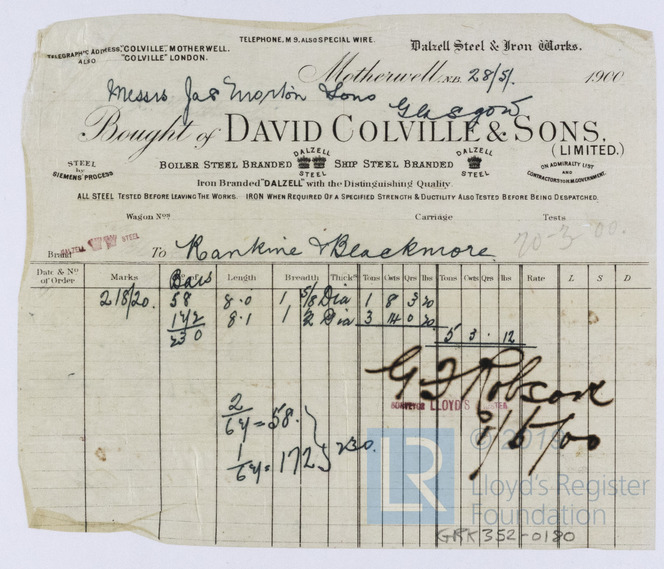 TELEPHONE, M 9, ALSO SPECIAL WIRE.
TELEGRAPHIC ADDRESS, "COLVILLE", MOTHERWELL.
ALSO "COLVILLE" LONDON.
Dalzell Steel & Iron Works.
Motherwell, N.B. 28/5/. 1900
Messrs Jas Morton & Sons
Glasgow
Bought of DAVID COLVILLE & SONS.
(LIMITED.)
STEEL by SIEMENS' PROCESS
BOILER STEEL BRANDED DALZELL STEEL SHIP STEEL BRANDED DALZELL STEEL
ON ADMIRALTY LIST AND CONTRACTORS TO H.M. GOVERNMENT.
Iron Branded "DALZELL" with the Distinguishing Quality.
ALL STEEL TESTED BEFORE LEAVING THE WORKS. IRON WHEN REQUIRED OF A SPECIFIED STRENGTH & DUCTILITY ALSO TESTED BEFORE BEING DESPATCHED.
Wagon Nos. Carriage Tests
20-3-00.
Brand DALZELL STEEL To Rankine & Blackmore
Date & No of Order Marks No of Bars Length Breadth Thicks Tons Cwts Qrs lbs Tons Cwts Qrs lbs Rate L S D
218/20. 58 8.0 1 5/8 Dia 1 8 3 20
172 8.1 1 1/2 Dia 3 14 0 20
230 5 3 . 12
G F Robson
SURVEYOR LLOYD'S
9/5/00
2/64 = 58.
1/64 = 172
230.
© 2019
LR
Lloyd's Register
Foundation
GRK352-0180